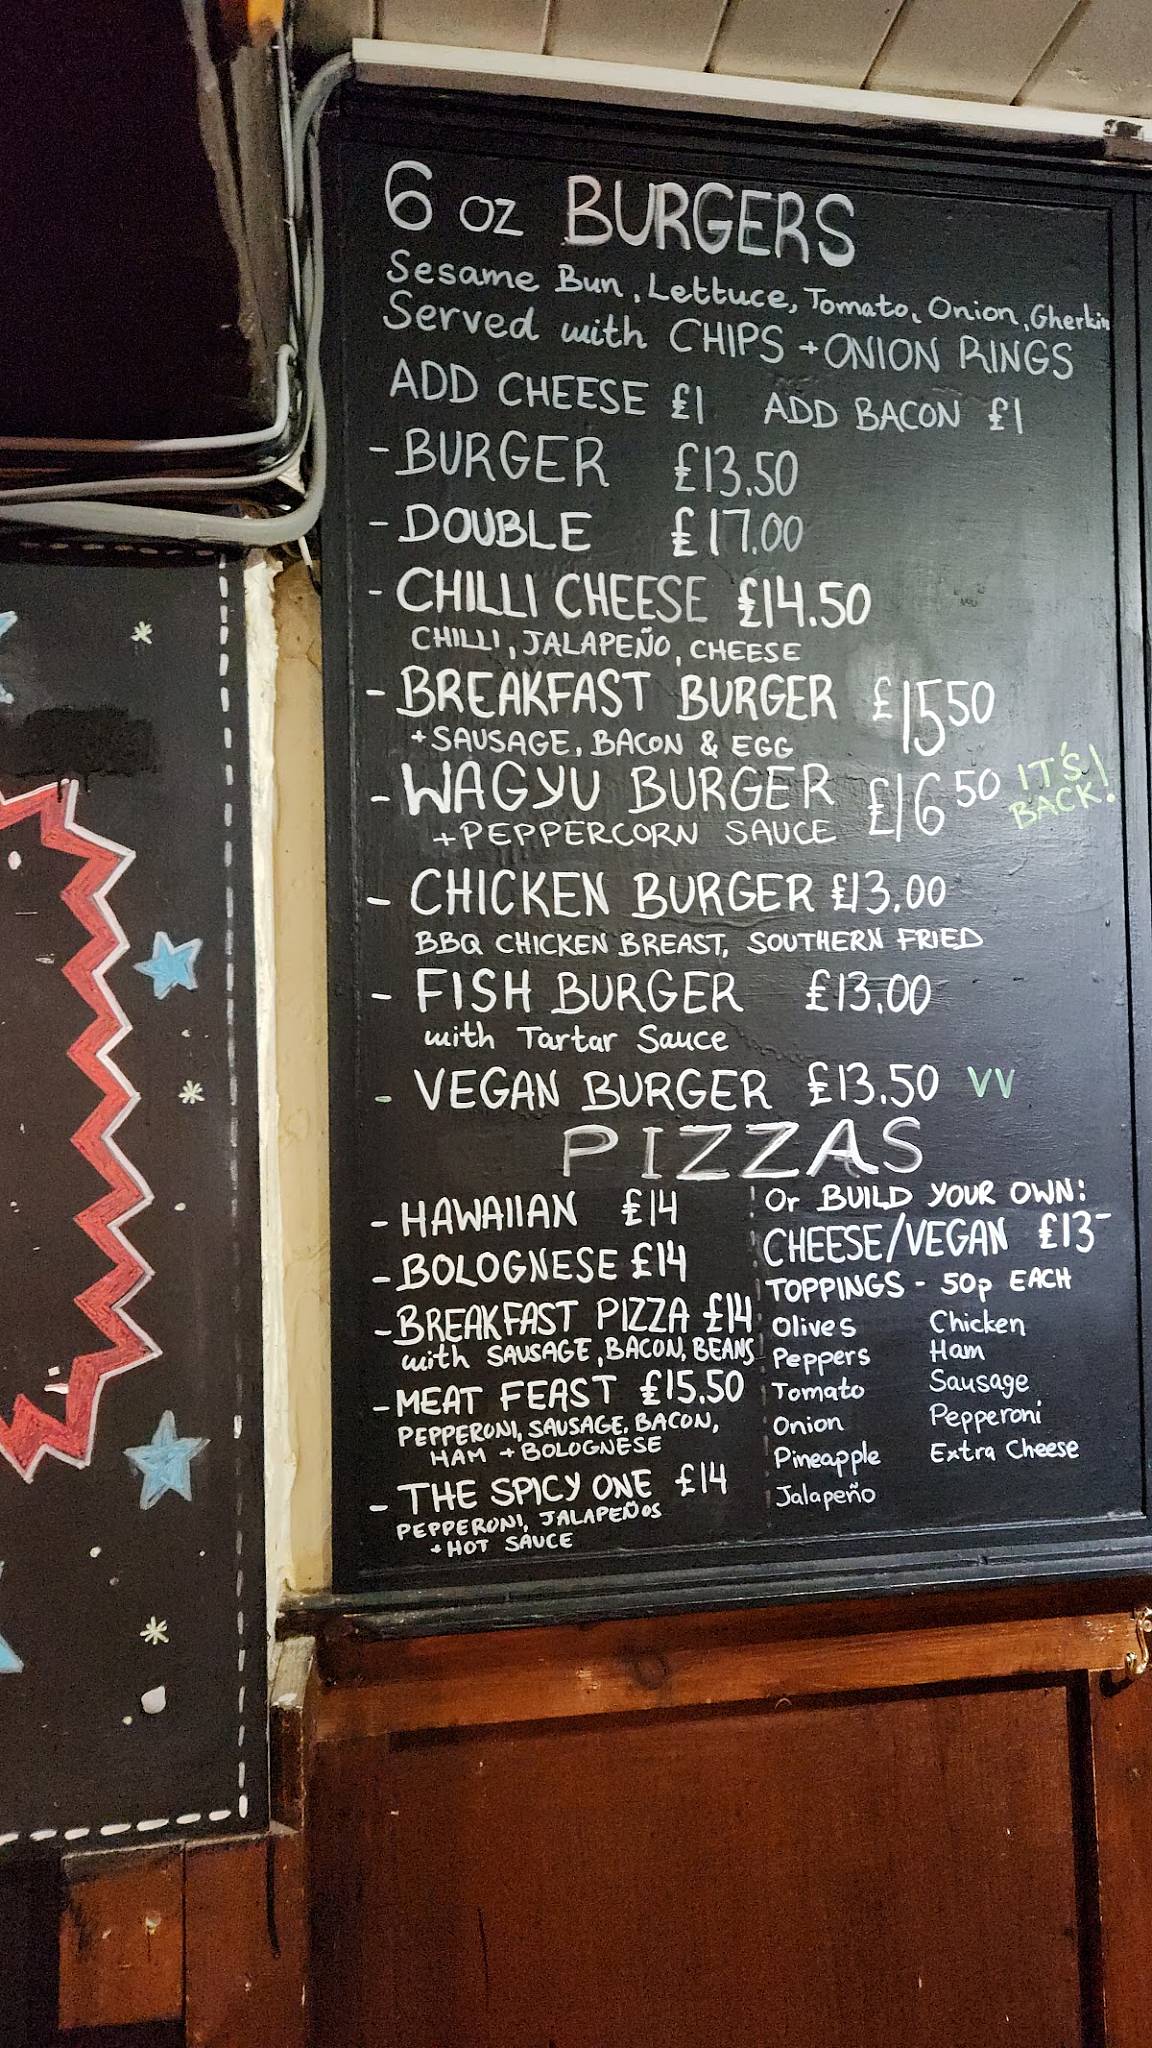 6 oz BURGERS
Sesame Bun, Lettuce, Tomato, Onion, Gherkin
Served with CHIPS + ONION RINGS
ADD CHEESE £1 ADD BACON £1
- BURGER £13.50
- DOUBLE £17.00
- CHILLI CHEESE £14.50
CHILLI, JALAPEÑO, CHEESE
- BREAKFAST BURGER £15 50
+ SAUSAGE, BACON & EGG
- WAGYU BURGER £16 50 IT'S BACK!
+ PEPPERCORN SAUCE
- CHICKEN BURGER £13.00
BBQ CHICKEN BREAST, SOUTHERN FRIED
- FISH BURGER £13.00
with Tartar Sauce
- VEGAN BURGER £13.50 VV
PIZZAS
- HAWAIIAN £14
- BOLOGNESE £14
- BREAKFAST PIZZA £14
with SAUSAGE, BACON, BEANS
- MEAT FEAST £15.50
PEPPERONI, SAUSAGE, BACON,
HAM + BOLOGNESE
- THE SPICY ONE £14
PEPPERONI, JALAPEÑOS
+ HOT SAUCE
Or BUILD YOUR OWN:
CHEESE/VEGAN £13-
TOPPINGS - 50p EACH
Olives Chicken
Peppers Ham
Tomato Sausage
Onion Pepperoni
Pineapple Extra Cheese
Jalapeño